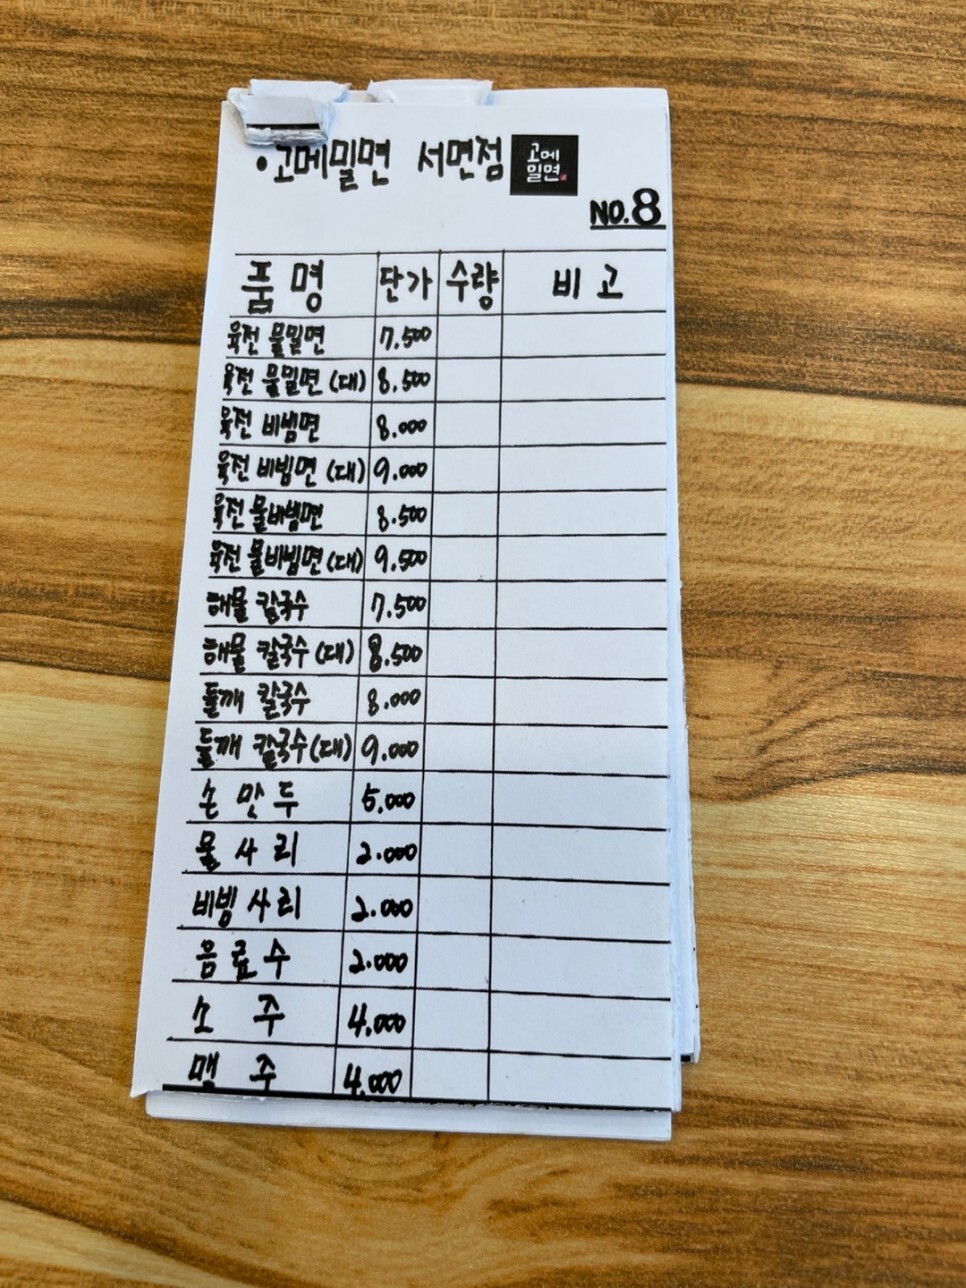 •고메밀면 서면점 고메
밀면
NO.8
품명 단가 수량 비고
육전 물밀면 7.500
육전 물밀면 (대) 8.500
육전 비빔면 8.000
육전 비빔면 (대) 9.000
육전 물비빔면 8.500
육전 물비빔면 (대) 9.500
해물 칼국수 7.500
해물 칼국수 (대) 8.500
들깨 칼국수 8.000
들깨 칼국수 (대) 9.000
손만두 5.000
물사리 2.000
비빔사리 2.000
음료수 2.000
소주 4.000
맥주 4.000